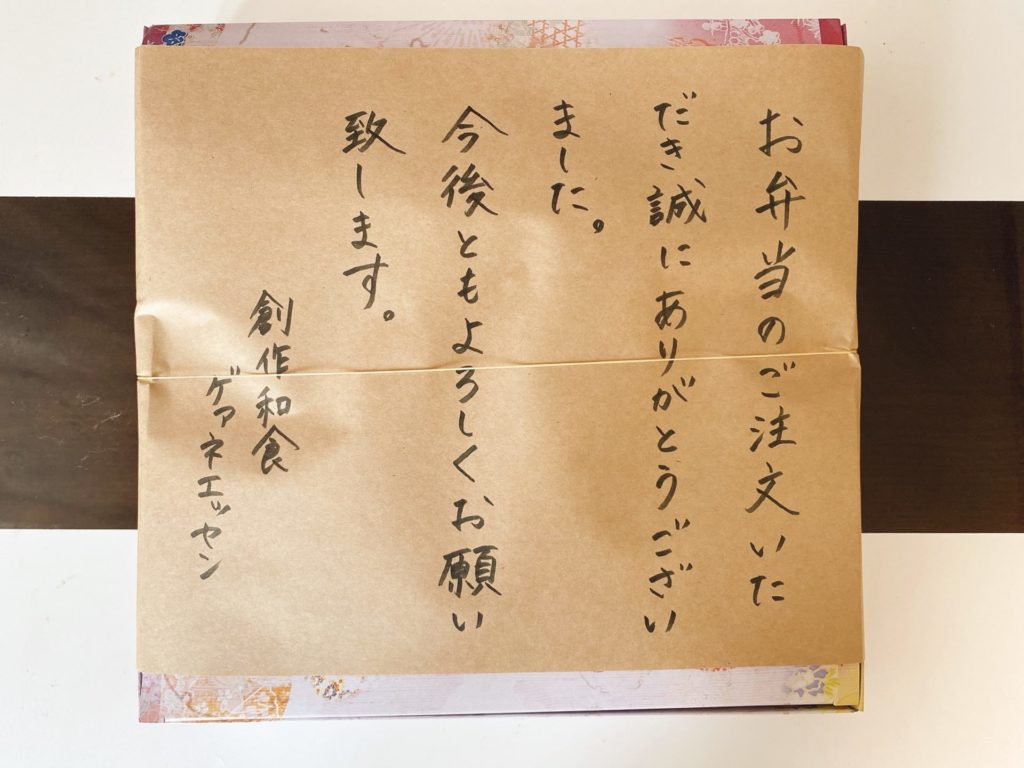 お弁当のご注文いた
だき誠にありがとうござい
ました。
今後ともよろしくお願い
致します。
創作和食
ゲァネエッセン